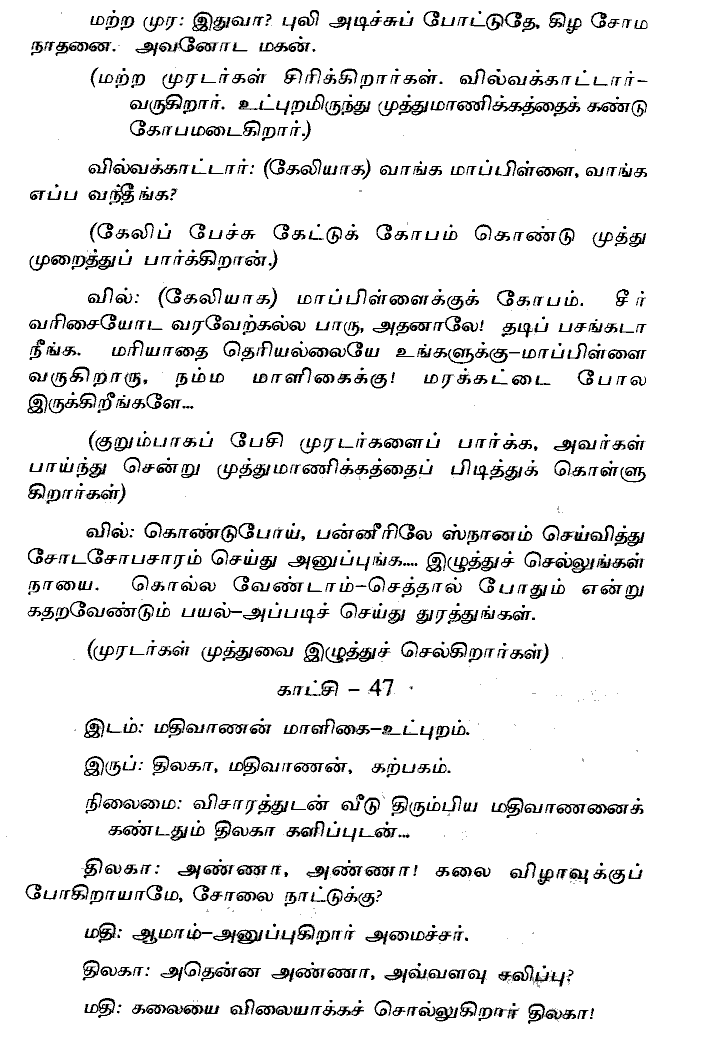 மற்ற முர: இதுவா? புலி அடிச்சுப் போட்டுதே, கிழ சோம
நாதனை. அவனோட மகன்.
(மற்ற முரடர்கள் சிரிக்கிறார்கள். வில்வக்காட்டார்-
வருகிறார். உட்புறமிருந்து முத்துமாணிக்கத்தைக் கண்டு
கோபமடைகிறார்.)
வில்வக்காட்டார்: (கேலியாக) வாங்க மாப்பிள்ளை, வாங்க
எப்ப வந்தீங்க?
(கேலிப் பேச்சு கேட்டுக் கோபம் கொண்டு முத்து
முறைத்துப் பார்க்கிறான்.)
வில்: (கேலியாக) மாப்பிள்ளைக்குக் கோபம். சீர்
வரிசையோட வரவேற்கல்ல பாரு, அதனாலே! தடிப் பசங்கடா
நீங்க. மரியாதை தெரியல்லையே உங்களுக்கு-மாப்பிள்ளை
வருகிறாரு, நம்ம மாளிகைக்கு! மரக்கட்டை போல
இருக்கிறீங்களே...
(குறும்பாகப் பேசி முரடர்களைப் பார்க்க, அவர்கள்
பாய்ந்து சென்று முத்துமாணிக்கத்தைப் பிடித்துக் கொள்ளு
கிறார்கள்)
வில்: கொண்டுபோய், பன்னீரிலே ஸ்நானம் செய்வித்து
சோடசோபசாரம் செய்து அனுப்புங்க.... இழுத்துச் செல்லுங்கள்
நாயை. கொல்ல வேண்டாம்-செத்தால் போதும் என்று
கதறவேண்டும் பயல்-அப்படிச் செய்து துரத்துங்கள்.
(முரடர்கள் முத்துவை இழுத்துச் செல்கிறார்கள்)
காட்சி - 47
இடம்: மதிவாணன் மாளிகை-உட்புறம்.
இருப்: திலகா, மதிவாணன், கற்பகம்.
நிலைமை: விசாரத்துடன் வீடு திரும்பிய மதிவாணனைக்
கண்டதும் திலகா களிப்புடன்...
திலகா: அண்ணா, அண்ணா! கலை விழாவுக்குப்
போகிறாயாமே, சோலை நாட்டுக்கு?
மதி: ஆமாம்-அனுப்புகிறார் அமைச்சர்.
திலகா: அதென்ன அண்ணா, அவ்வளவு சலிப்பு?
மதி: கலையை விலையாக்கச் சொல்லுகிறார் திலகா!